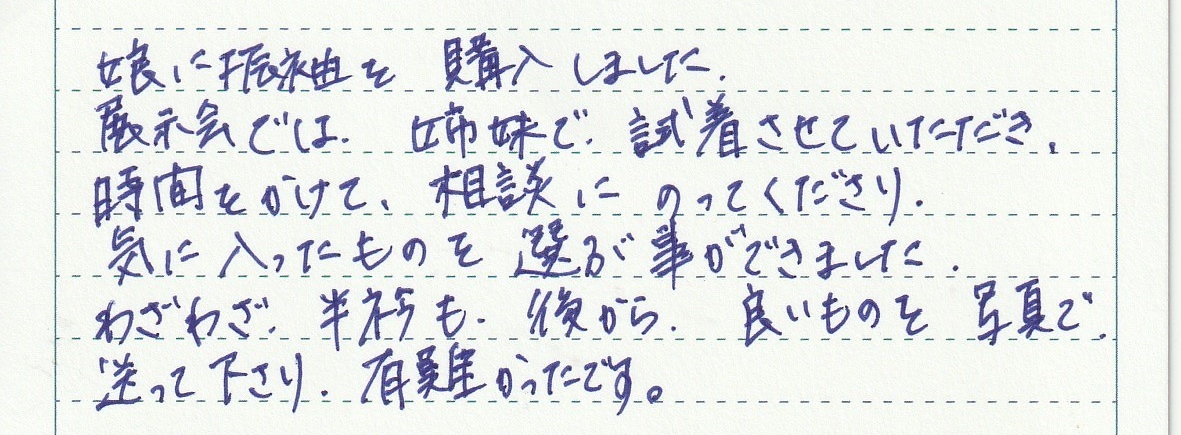 娘に振袖を 購入しました.
展示会では. 姉妹で. 試着させていただき.
時間をかけて、相談に のってくださり.
気に入ったものを 選ぶ事ができました.
わざわざ. 半衿も. 後から. 良いものを 写真で.
送って下さり. 有難かったです。